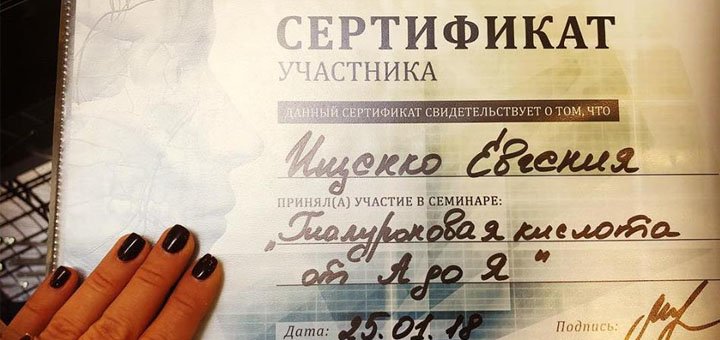 СЕРТИФИКАТ
УЧАСТНИКА
ДАННЫЙ СЕРТИФИКАТ СВИДЕТЕЛЬСТВУЕТ О ТОМ, ЧТО
Ищенко Евгения
ПРИНЯЛ(А) УЧАСТИЕ В СЕМИНАРЕ:
„Гиалуроновая кислота
от А до Я"
Дата: 25.01.18 Подпись: